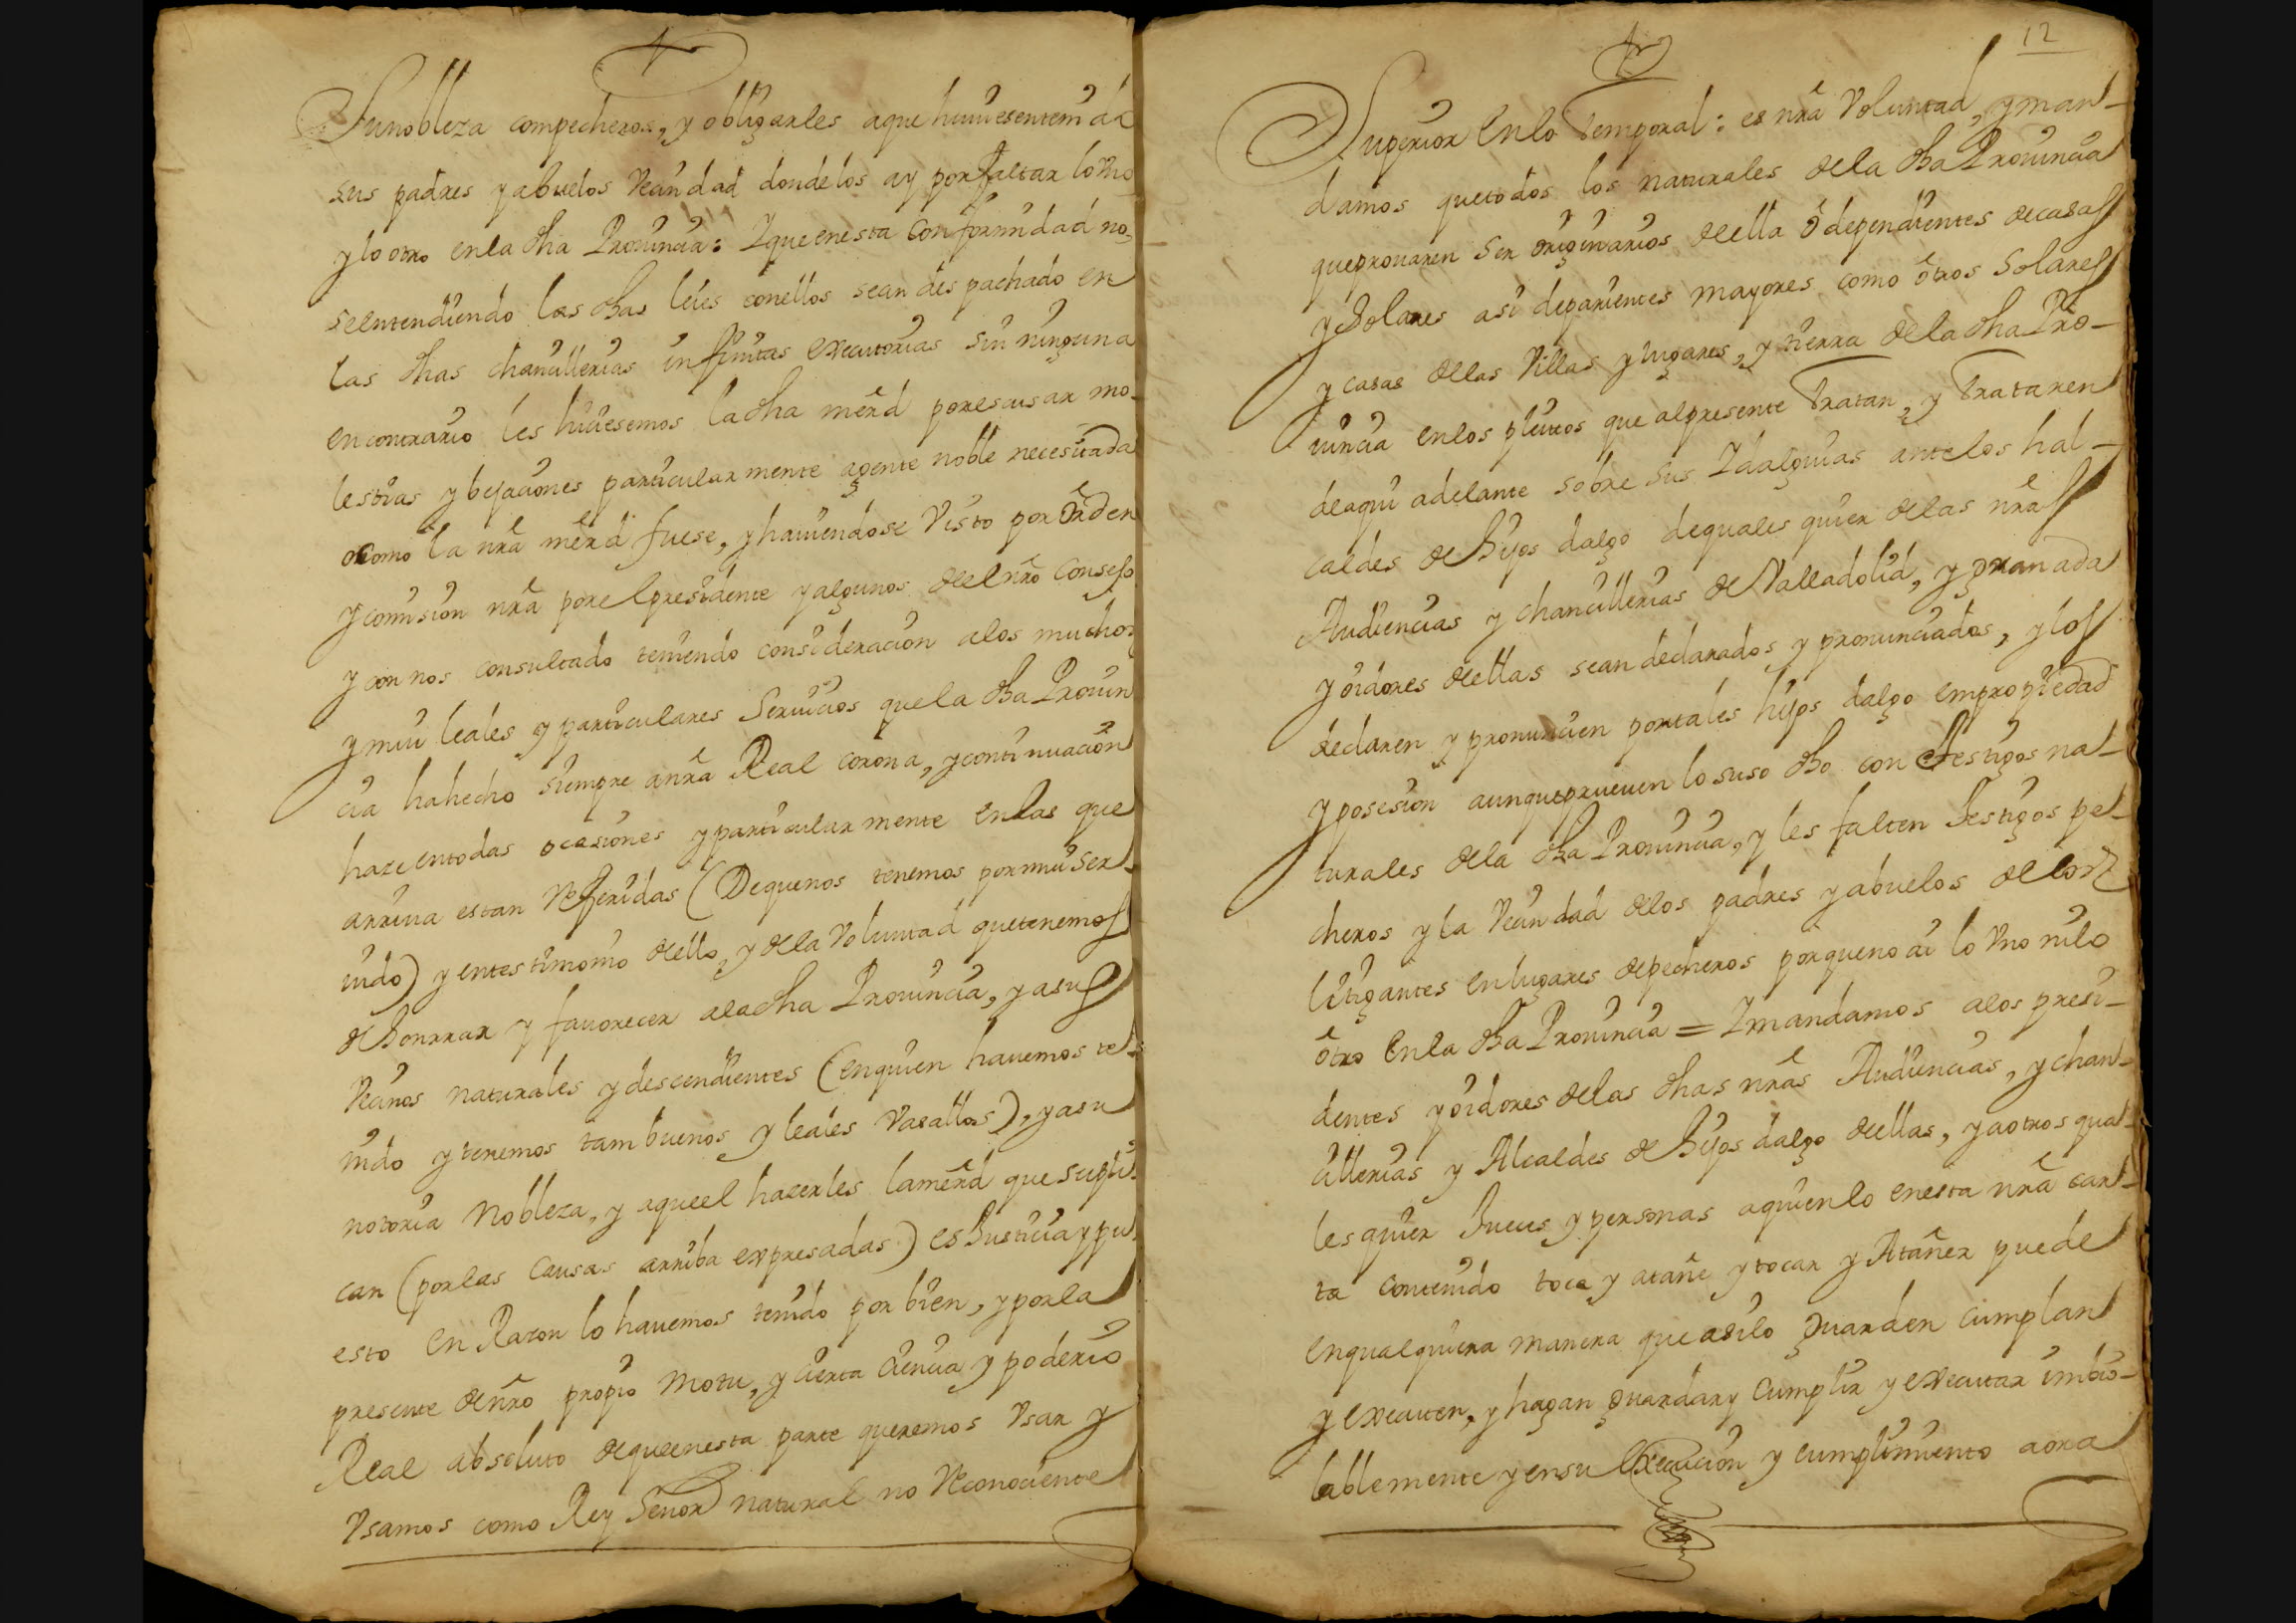 Su nobleza compecheros, y obligarles aque huuiesentenida
sus padres y abuelos Vecindad donde los ay por faltar lo Vno
y lo otro enla dha Prouincia: Y que enesta conformidad no
seentendiendo las dhas leies conellos sean despachado en
las dhas chancillerias infinitas executorias sin ninguna
en contrario les hiciesemos la dha mrd por escusar mo-
lestias y bejaciones particularmente agente noble necesitada
o como la nra mrd fuese, y hauiendose Visto por orden
y comision nra por el presidente y algunos del nro Consejo
y con nos consultado teniendo consideracion alos muchos
y mui leales y particulares Seruicios que la dha Prouin
cia ha hecho siempre anra Real corona, y continuacion
haze entodas ocasiones y particularmente enlas que
arriua estan Referidas (De quenos tenemos por mui ser-
uido) y entestimonio dello, y dela Voluntad quetenemos
de honrrar y fauorecer ala dha Prouincia, y asus
Vecinos naturales y descendientes (enquien hauemos te-
nido y tenemos tam buenos y leales Vasallos), y asu
notoria Nobleza, y aqueel hacerles la mrd que supli-
can (por las causas arriba expresadas) es Justicia y pu-
esto en Razon lo hauemos tenido por bien, y por la
presente de nro propio Motu, y cierta ciencia y poderio
Real absoluto de queenesta parte queremos Vsar y
Vsamos como Rey Señor natural no Reconociente
12
Superior en lo temporal: es nra Voluntad, y man-
damos quetodos los naturales dela dha Prouincia
queprouaren ser originarios de ella ò dependientes de casas
y Solares asi deparientes mayores como otros Solares
y casas de las Villas y lugares, y tierra dela dha Pro-
uincia enlos pleitos que alpresente tratan, y trataren
deaqui adelante sobre sus Idalguias antelos hal-
caldes de hijos dalgo de quales quier de las nras
Audiencias y chancillerias de Valladolid, y granada
y oidores dellas sean declarados y pronunciados, y los
declaren y pronuncien portales hijos dalgo empropiedad
y posesion aunqueprueuen lo suso dho con testigos na-
turales dela dha Prouincia, y les falten testigos pe-
cheros y la Vecindad delos padres y abuelos de los
litigantes enlugares depecheros porqueno ai lo Vno nilo
otro en la dha Prouincia = Y mandamos alos presi-
dentes y oidores delas dhas nras Audiencias, y chan-
cillerias y Alcaldes de hijos dalgo dellas, y aotros qua-
les quier Jueces y personas aquienlo enesta nra car-
ta contenido toca y atañe y tocar y Atañer puede
enqualquiera manera que asilo guarden cumplan
y executen, y hagan guardar y cumplir y executar imbio-
lablemente y ensu execucion y cumplimiento aora